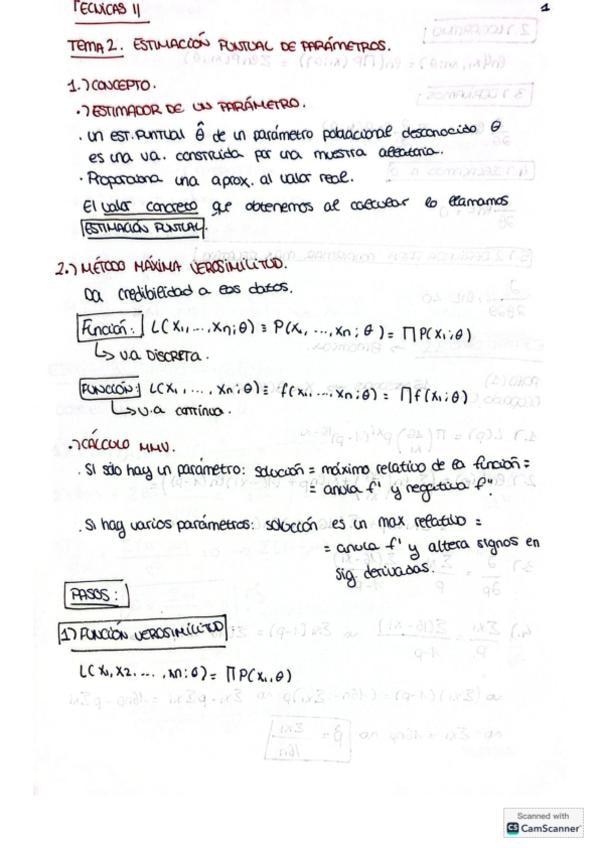 TECNICAS II
1
TEMA 2. ESTIMACIÓN PUNTUAL DE PARÁMETROS.
1.) CONCEPTO.
·) ESTIMADOR DE UN PARÁMETRO.
· Un EST. PUNTUAL θ̂ de un parámetro poblacional desconocido θ
es una v.a. construida por una muestra aleatoria.
· Proporciona una aprox. al valor real.
El valor concreto que obtenemos al calcular lo llamamos
ESTIMACIÓN PUNTUAL.
2.) MÉTODO MÁXIMA VEROSIMILITUD.
Da credibilidad a los datos.
Función: L(x₁,...,xn;θ) ≡ P(x₁,...,xn;θ) = ∏P(xi;θ)
↳ V.A DISCRETA.
FUNCIÓN: L(x₁,...,xn;θ) ≡ f(x₁,...,xn;θ) = ∏f(xi;θ)
↳ v.a continua.
·) CÁLCULO MMV.
· Si sólo hay un parámetro: solución = máximo relativo de la función =
= anula f' y negativa f''
· Si hay varios parámetros: solución es un max. relativo =
= anula f' y altera signos en
sig. derivadas.
PASOS:
1) FUNCIÓN VEROSIMILITUD
L(x₁,x₂....,xn;θ) = ∏P(xi,θ)
Scanned with
CS CamScanner